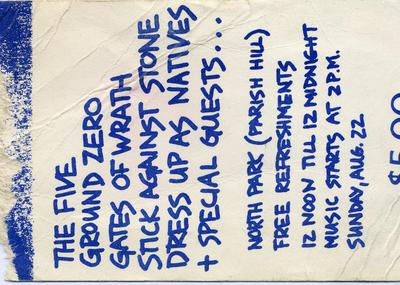 THE FIVE
GROUND ZERO
GATES OF WRATH
STICK AGAINST STONE
DRESS UP AS NATIVES
+ SPECIAL GUESTS...
NORTH PARK (PARISH HILL)
FREE REFRESHMENTS
12 NOON TILL 12 MIDNIGHT
MUSIC STARTS AT 2 P.M.
SUNDAY, AUG. 22